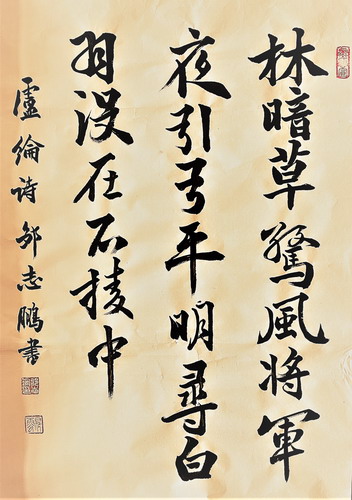 林暗草驚風将軍
夜引弓平明尋白
羽没在石棱中
盧綸诗邹志鵬書